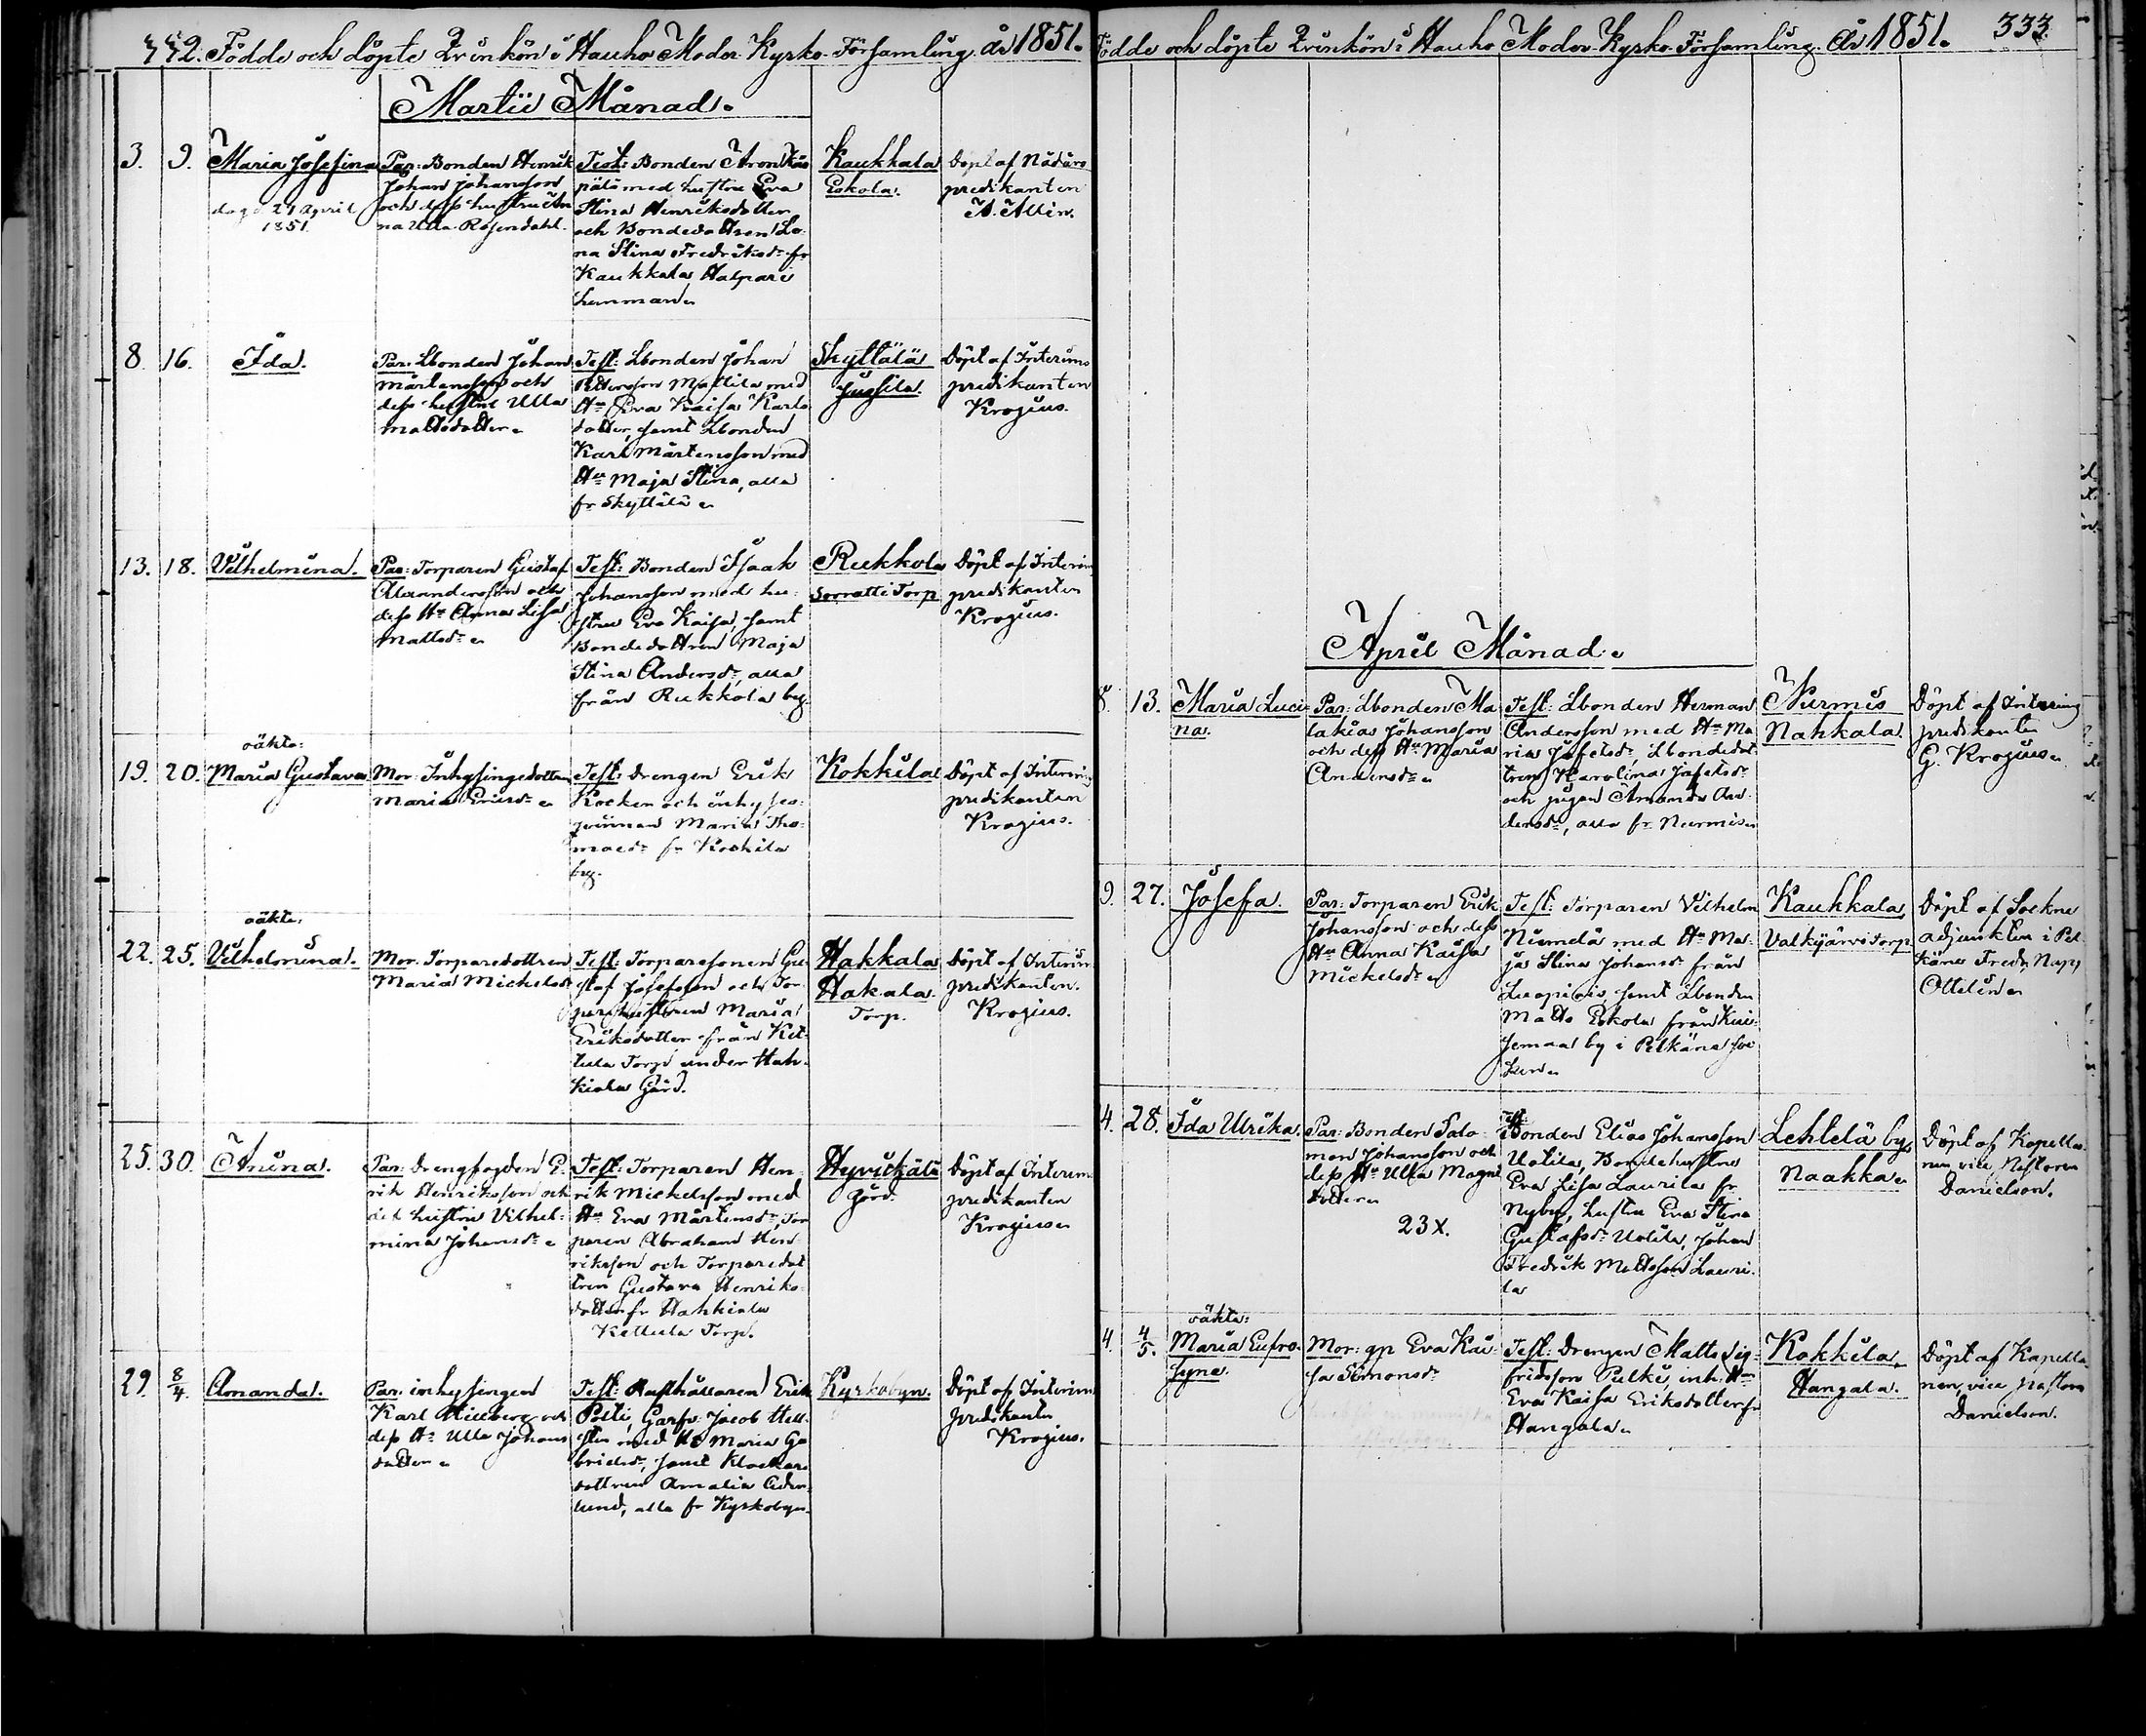 Födde och döpte Qvinkön i Hauho Moder Kyrko Församling år 1851.
Martii Månad.
3. 9. Maria Josefina
död d. 21 April
1851.
Par: Bonden Henrik
Johan Johansson
och dess hustru An
na Ulla Rosendahl.
Test: Bonden Aron
med hustru Eva
Stina Henriksdotter
och Bondedottren Lo
na Stina Fredriksdr fr
Kaukkala Halpari
hemman.
Kaukkala
Eskola.
Döpt af Nådårs
predikanten
A. Allin.
8. 16. Ida.
Par: Lbonden Johan
Mårtensson och
dess hustru Ulla
Mattsdotter.
Test: Lbonden Johan
Pettersson Mattila med
Hu Eva Kaisa Karls
dotter, samt Lbonden
Karl Mårtensson med
Hu Maja Stina, alla
fr Skyttälä.
Skyttälä
Jussila.
Döpt af Interims
predikanten
Krogius.
13. 18. Vilhelmina.
Par: Torparen Gustaf
Alexandersson och
dess Hu Anna Lisa
Mattsdr.
Test: Bonden Isaak
Johansson med hu
stru Eva Kaisa, samt
Bondedottren Maja
Stina Andersdr, alla
från Rukkola by.
Rukkola
Sorratti Torp
Döpt af Interims
predikanten
Krogius.
oäkta:
19. 20. Maria Gustava
Mor: Inhysingedottren
Maria Ericsdr.
Test: Drengen Erik
Kocken och inhyses
qvinnan Maria Tho
maedr fr Kockila
by.
Kokkila
Döpt af Interims
predikanten
Krogius.
oäkta:
22. 25. Vilhelmina.
Mor: Torparedottren
Maria Michelsdr
Test: Torparesonen Gu
staf Josefsson och Tor
parehustrun Maria
Eriksdotter från Ket
tula Torp under Hah
kiala Gård.
Hakkala
Hakala
Torp.
Döpt af Interims
predikanten.
Krogius.
25. 30. Anina.
Par: Drengfogden E
rik Henriksson och
des hustru Vilhel
mina Johansdr.
Test: Torparen Hen
rik Mickelsson med
Hu Eva Mårtensdr, Tor
paren Abraham Hen
riksson och Torparedot
tren Gustava Henriks
dotter fr Hahkiala
Kettula Torp.
Hyvickälä
Gård.
Döpt af Interims
predikanten
Krogius.
29. 8/4. Amanda.
Par: inhysingen
Karl Hillberg och
dess Hu Ulla Johans
dotter.
Test: Rusthållaren Erik
Potti, Garfv. Jacob Hell
sten med Hu Maria Ga
brielsdr, samt Klockare
dottren Amalia Ceder
lund, alla fr Kyrkobyn.
Kyrkobyn.
Döpt af Interims
predikanten
Krogius.
Födde och döpte Qvinkön i Hauho Moder Kyrko Församling År 1851. 333.
April Månad.
8. 13. Maria Luci
na.
Par: Lbonden Ma
lakias Johansson
och dess Hu Maria
Andersdr.
Test: Lbonden Herman
Andersson med Hu Ma
ria Josefsdr, Lbondedot
tren Karolina Josefsdr
och pigan Amanda An
dersdr, alla fr Nurmis.
Nurmis
Nahkala.
Döpt af Interims
predikanten
G. Krogius.
9. 27. Josefa.
Par: Torparen Erik
Johansson och dess
Hu Anna Kaisa
Mickelsdr.
Test: Torparen Vilhelm
Niemelä med Hu Ma
ja Stina Johansdr från
Luopiois, samt Lbonden
Matts Eskola från Kui
semaa by i Pelkäne soc
ken.
Kaukkala
Valkijärvi Torp
Döpt af Sockne
adjunkten i Pel
käne Fredr. Nap.
Ottelin.
4. 28. Ida Ulrika.
Par: Bonden Salo
mon Johansson och
dess Hu Ulla Magni
dotter.
23 X.
Test:
Bonden Elias Johansson
Uotila, Bondehustrun
Eva Lisa Laurila fr
Nyby, hustru Eva Stina
Gustafsdr Uotila, Johan
Fredrik Mattsson Lauri
la
Lehtelä by,
Naakka.
Döpt af Kapella
nen vice Pastoren
Danielson.
oäkta:
4 4/5. Maria Eufro
syne.
Mor: gp Eva Kai
sa Simonsdr
Test: Drengen Matts Sig
fridsson Pelki, inh. Hu
Eva Kaisa Eriksdotter fr
Hangala.
Kokkila,
Hangala.
Döpt af Kapella
nen, vice pastoren
Danielson.